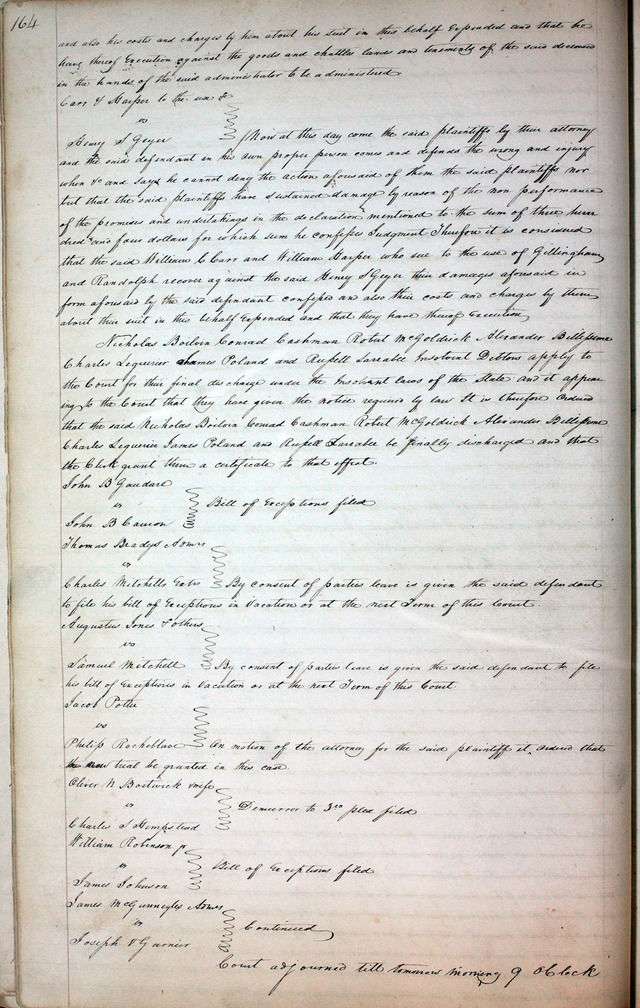 164
and also his costs and charges by him about his suit in this behalf Expended and that he
have thereof Execution against the goods and chattles lands and tenements of the said deceased
in the hands of the said administrator to be administered
Carr & Harper to the use &c
vs
Henry S Geyer Now at this day come the said plaintiffs by their attorney
and the said defendant in his own proper person comes and defends the wrong and injury
when &c and says he cannot deny the action aforesaid of them the said plaintiffs nor
but that the said plaintiffs have sustained damage by reason of the non performance
of the promises and undertakings in the declaration mentioned to the sum of three hun
dred and four dollars for which sum he confesses Judgment Therefore it is considered
that the said William C Carr and William Harper who sue to the use of Gillingham
and Randolph recover against the said Henry S Geyer their damages aforesaid in
form aforesaid by the said defendant confessed and also their costs and charges by them
about their suit in this behalf Expended and that they have thereof Execution
Nicholas Boilvin Conrad Cashman Robert McGoldrick Alexander Bellissime
Charles Lequerier James Poland and Russell Larrable Insolvent Debtors apply to
the Court for their final discharge under the Insolvent laws of the State and it appear
ing to the Court that they have given the notice required by law It is therefore ordered
that the said Nicholas Boilvin Conrad Cashman Robert McGoldrick Alexander Bellissime
Charles Lequerier James Poland and Russell Larrable be finally discharged and that
the Clerk grant them a certificate to that effect
John B
vs Bill of Exceptions filed
John B
Thomas Bradys Admrs
vs
Charles Mitchells Exts By consent of parties leave is given the said defendant
to file his bill of Exceptions in Vacation or at the next Term of this Court.
Augustus Jones & others
vs
Samuel Mitchell By consent of parties leave is given the said defendant to file
his bill of Exceptions in Vacation or at the next Term of this Court
Jacob Potter
vs
Philip Rocheblave On motion of the attorney for the said plaintiff it ordered that
new trial be granted in this case
Oliver N Bostwick & wife
vs Demurrer to 3rd plea filed
Charles S Hempstead
William Robinson jr
vs Bill of Exceptions filed
James Johnson
James McGunnegles Admrs
vs Continued
Joseph V Garnier
Court adjourned till tomorrow morning 9 O'Clock